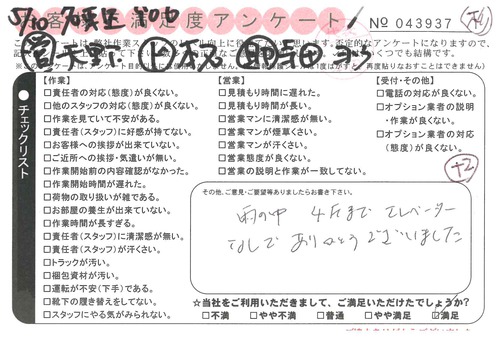 お客様満足度アンケート
No 043937
5/10
【作業】
□責任者の対応(態度)が良くない。
□他のスタッフの対応(態度)が良くない。
□作業を見ていて不安がある。
□責任者(スタッフ)に好感が持てない。
□お客様への挨拶が出来ていない。
□ご近所への挨拶・気遣いが無い。
□作業開始前の内容確認がなかった。
□作業開始時間が遅れた。
□荷物の取り扱いが雑である。
□お部屋の養生が出来ていない。
□作業時間が長すぎる。
□責任者(スタッフ)に清潔感が無い。
□責任者(スタッフ)が汗くさい。
□トラックが汚い。
□梱包資材が汚い。
□運転が不安(下手)である。
□靴下の履き替えをしてない。
□スタッフにやる気がみられない。
【営業】
□見積もり時間に遅れた。
□見積もり時間が長い。
□営業マンに清潔感が無い。
□営業マンが煙草くさい。
□営業マンが汗くさい。
□営業態度が良くない。
□営業の説明と作業が一致してない。
【受付・その他】
□電話の対応が良くない。
□オプション業者の説明
・作業が良くない。
□オプション業者の対応
(態度)が良くない。
チェックリスト
+2
その他、ご意見・ご要望等ありましたらお書き下さい。
雨の中 4Fまで エレベーター
なしで ありがとうございました
☆当社をご利用いただきまして、ご満足いただけたでしょうか?
□不満 □やや不満 □普通 □やや満足 □満足